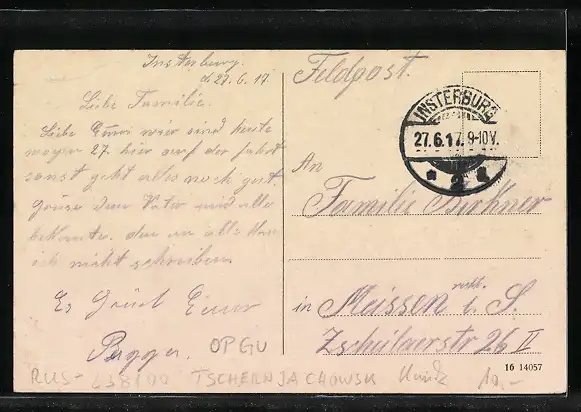 Insterburg.
d. 27. 6. 17.
Liebe Familie.
Liebe wier sind heute
morgen 27. hier auf der fahrt
sonst geht alles noch gut.
grüse den Vater und alle
bekante. den an alle kan
ich nicht schreiben
Es Grüst Euer
OPGU
Feldpost.
INSTERBURG
27.6.17. 9-10V.
An
Familie
in Meissen i. S.
Zscheilaerstr 26 II
16 14057
RUS- TSCHERNJACHOWSK 10,-